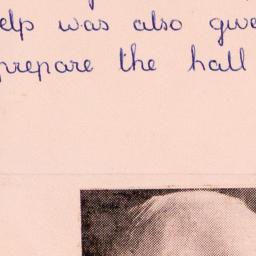 elp was also give
prepare the hall